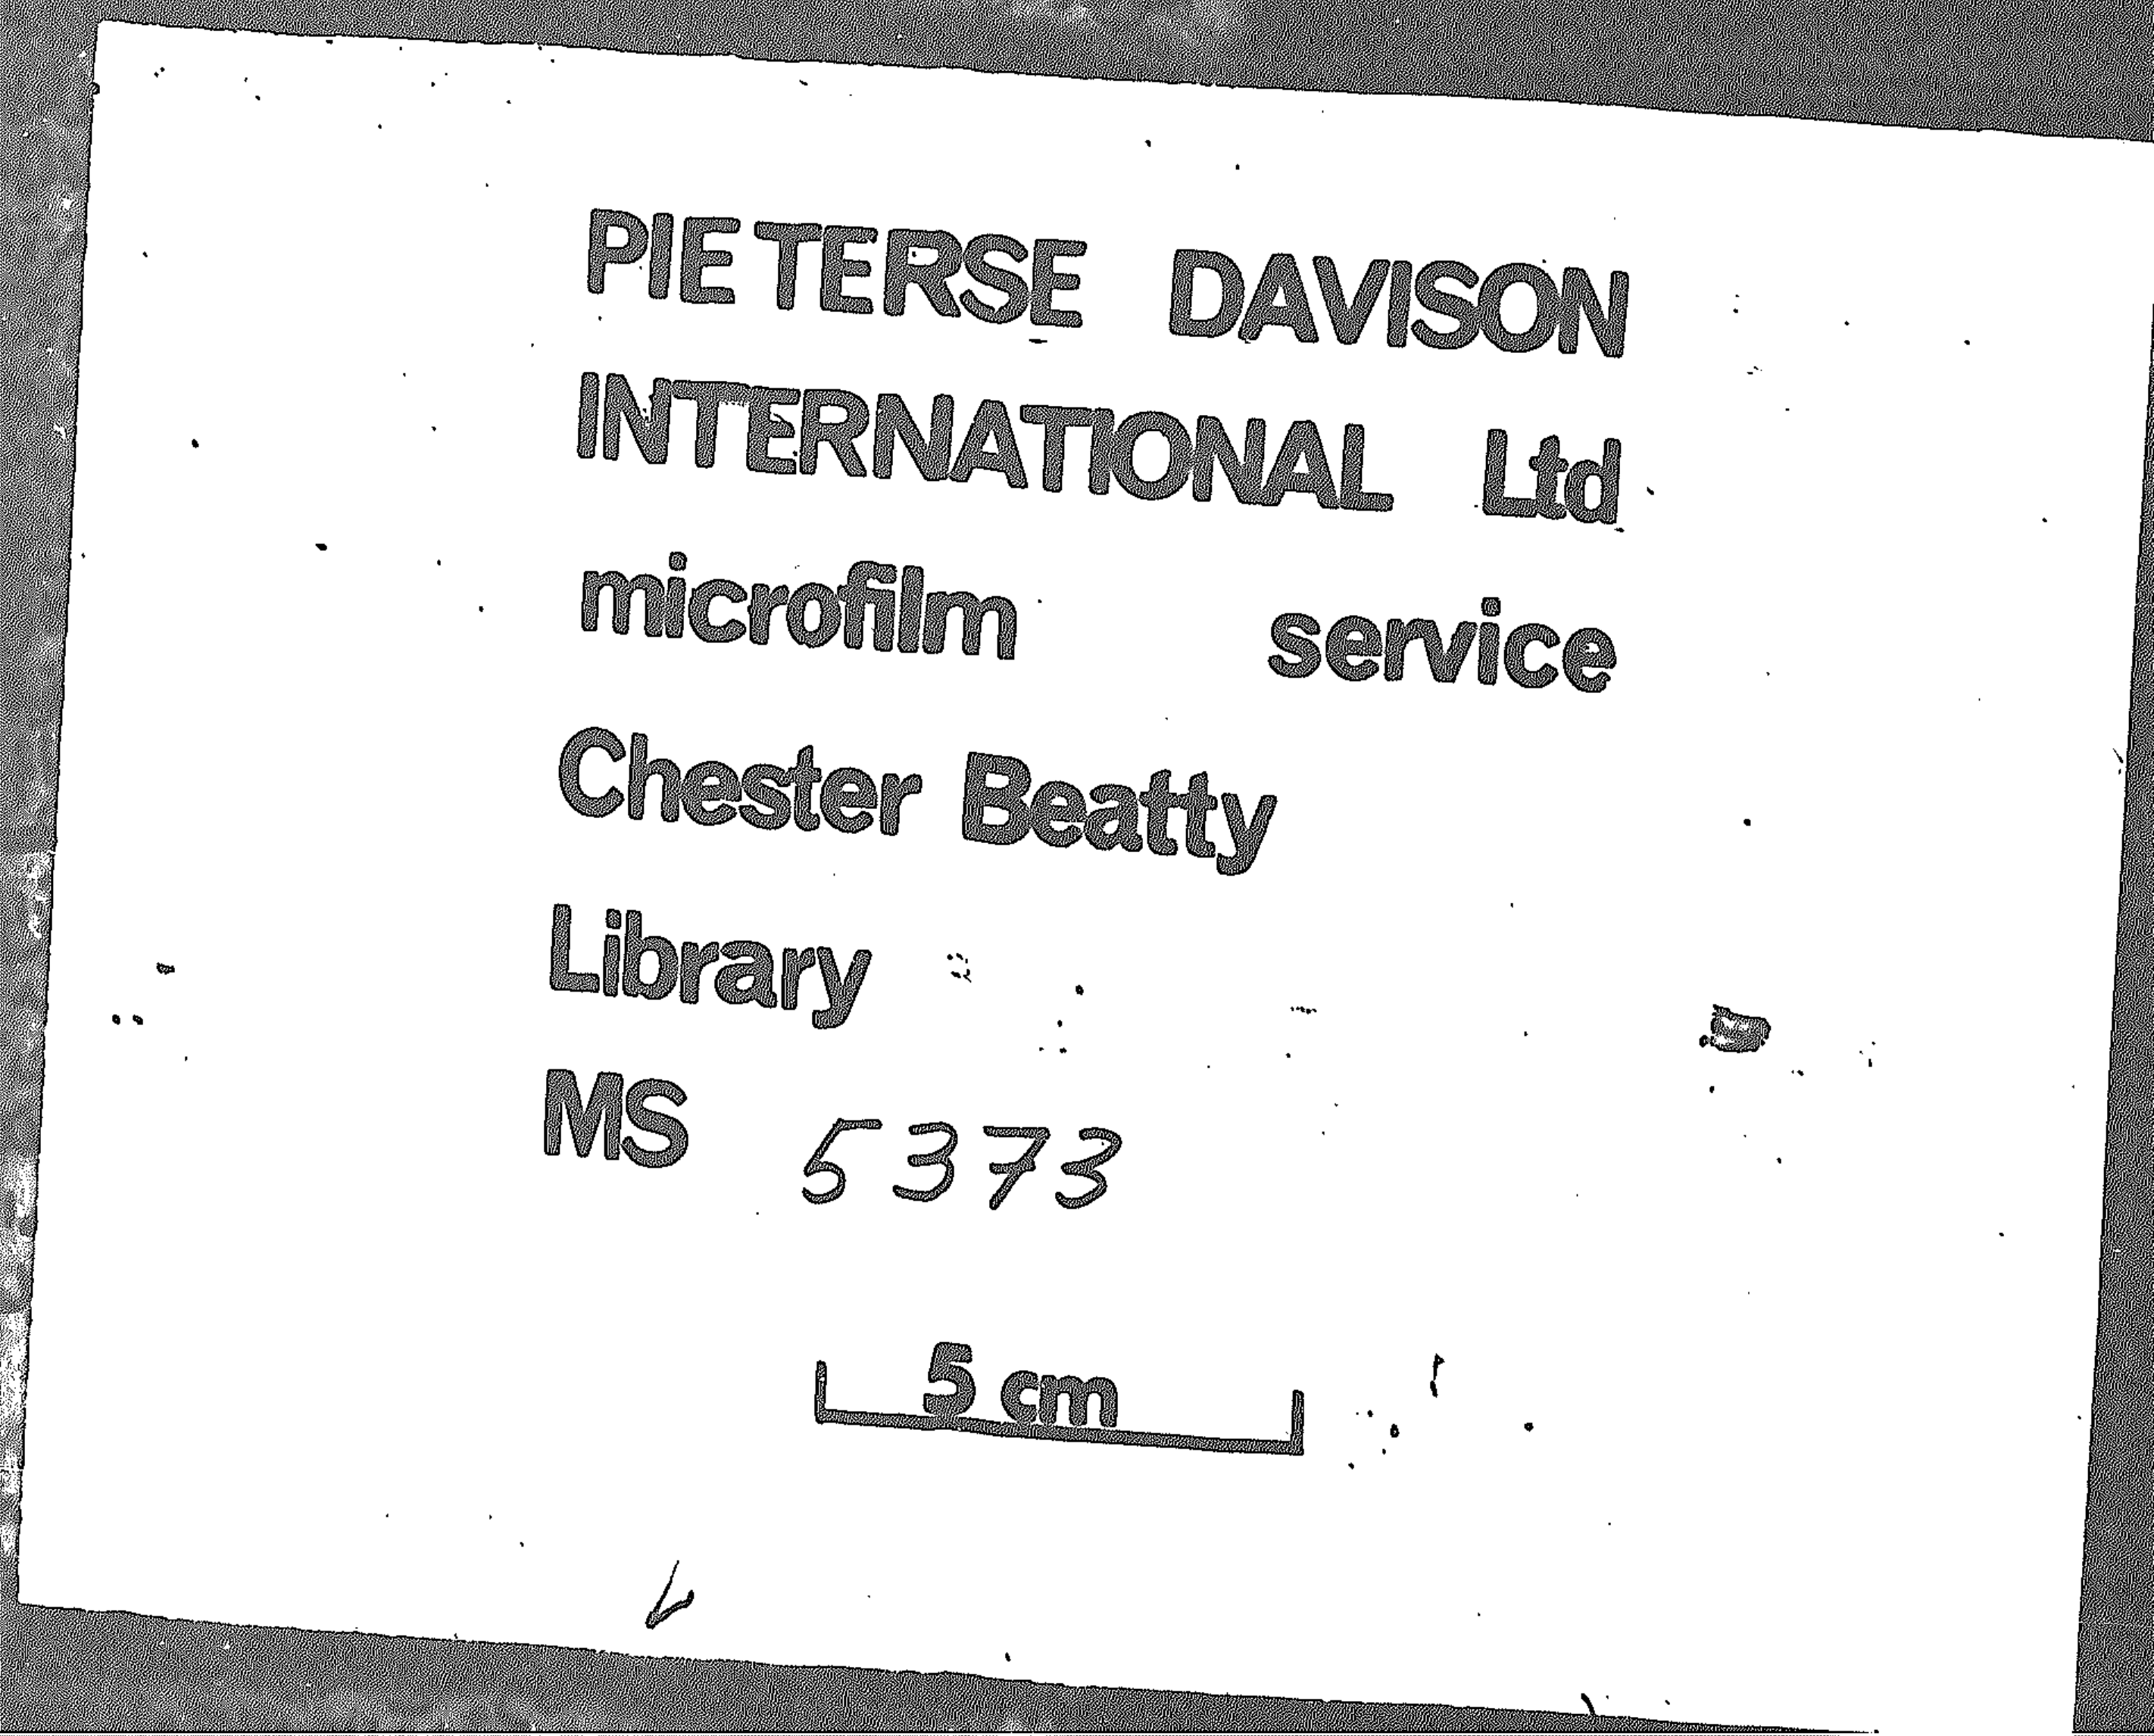 PIETERSE DAVISON
INTERNATIONAL Ltd
microfilm service
Chester Beatty
Library
MS 5373
5 cm